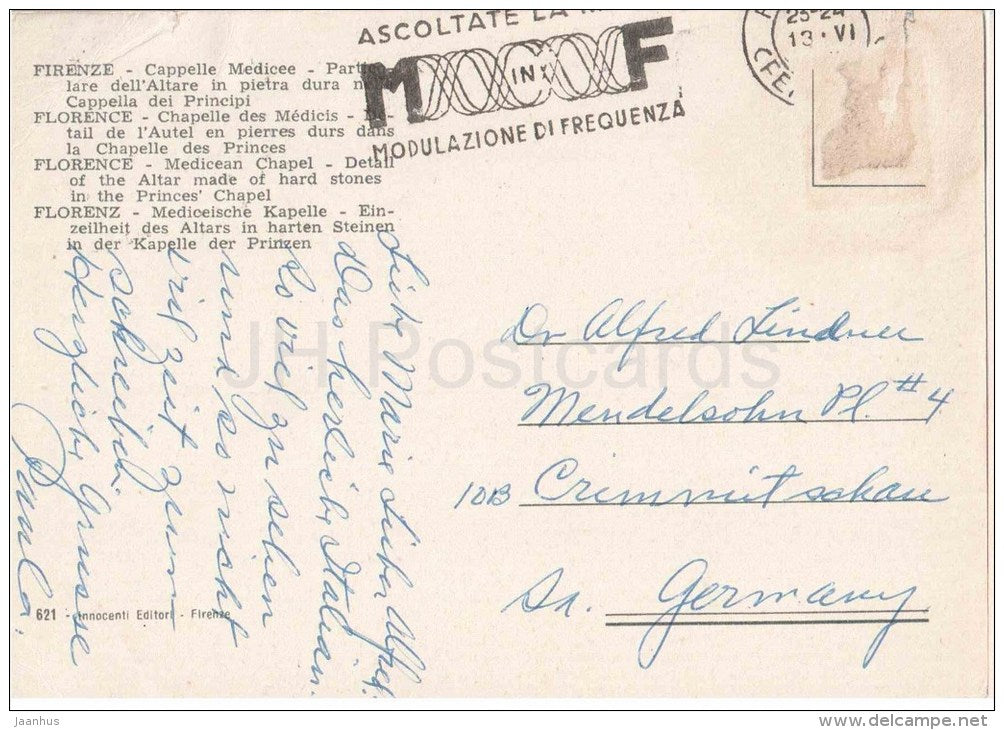 ASCOLTATE LA
M IN F
MODULAZIONE DI FREQUENZA
23-24
13·VI
FIRENZE - Cappelle Medicee - Partico-
lare dell'Altare in pietra dura nella
Cappella dei Principi
FLORENCE - Chapelle des Médicis - De-
tail de l'Autel en pierres durs dans
la Chapelle des Princes
FLORENCE - Medicean Chapel - Detail
of the Altar made of hard stones
in the Princes' Chapel
FLORENZ - Mediceische Kapelle - Ein-
zeilheit des Altars in harten Steinen
in der Kapelle der Prinzen
Liebe Marie Lieber Alfred.
Das herliche Italien.
So viel zu sehen
und so nicht
viel zeit zum
schreiben.
Herzliche Grusse
Paula.
Dr Alfred Lindner
Mendelsohn Pl. #4
10B Crimmitschau
Sa. Germany
621 - Innocenti Editori - Firenze
JH Postcards
Jaanhus
www.delcampe.net